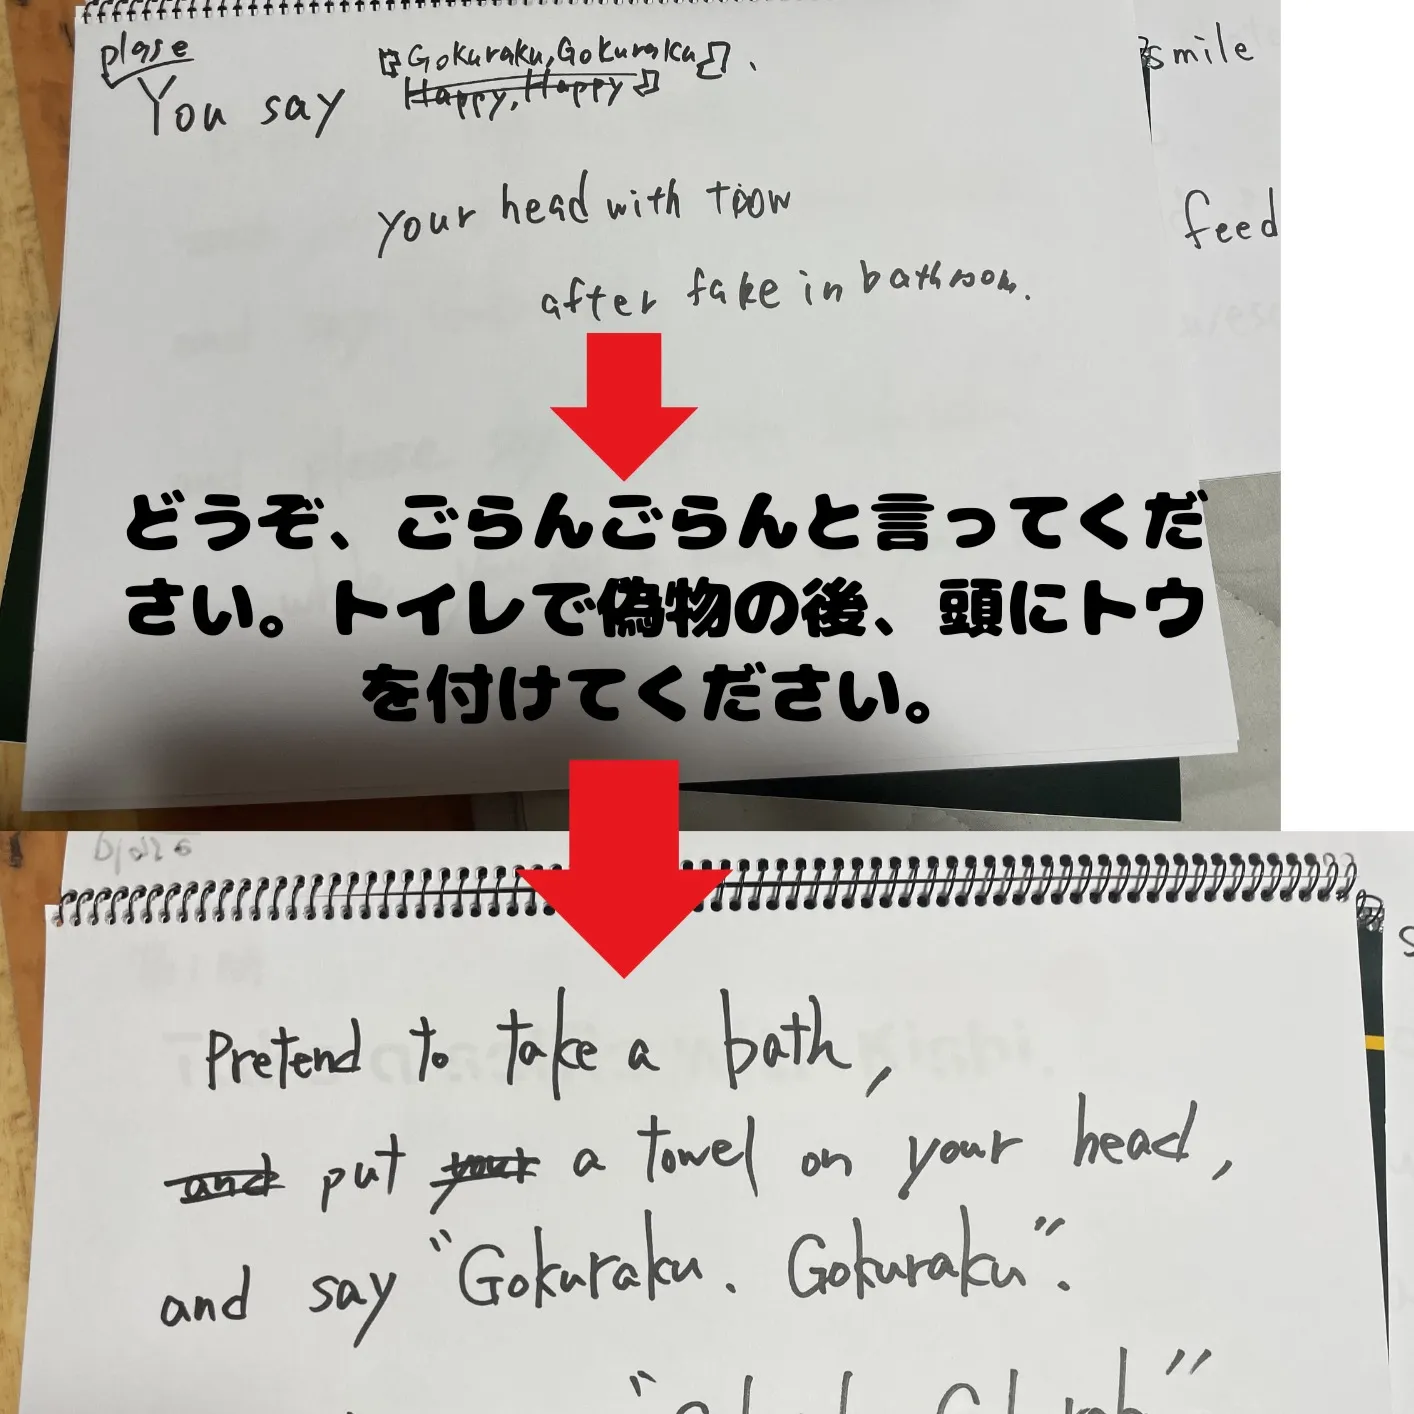 plase
You say 『Gokuraku,Gokuraku』.
Happy,Happy』
smile
your head with toow
feed
after fake in bathroom.
どうぞ、ごらんごらんと言ってくだ
さい。トイレで偽物の後、頭にトウ
を付けてください。
Pretend to take a bath,
and put your a towel on your head,
and say "Gokuraku. Gokuraku".